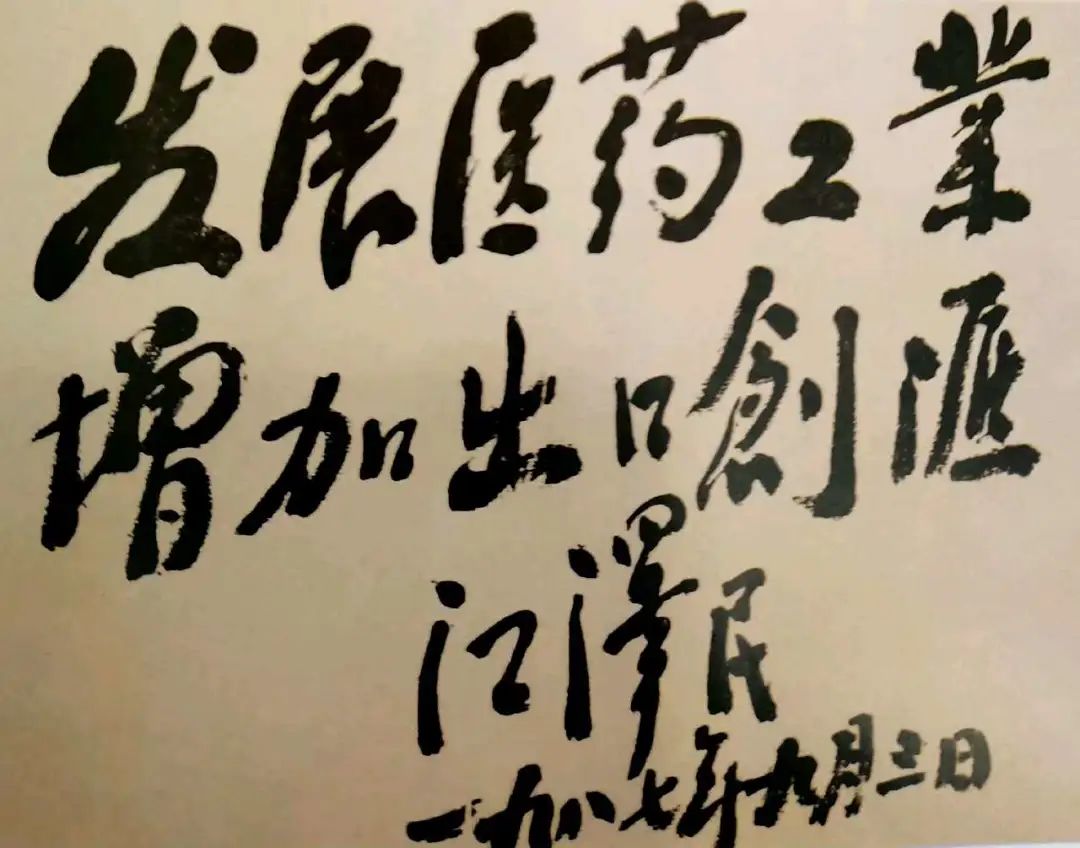 发展医药工業
增加出口創滙
江澤民
一九八七年九月三日